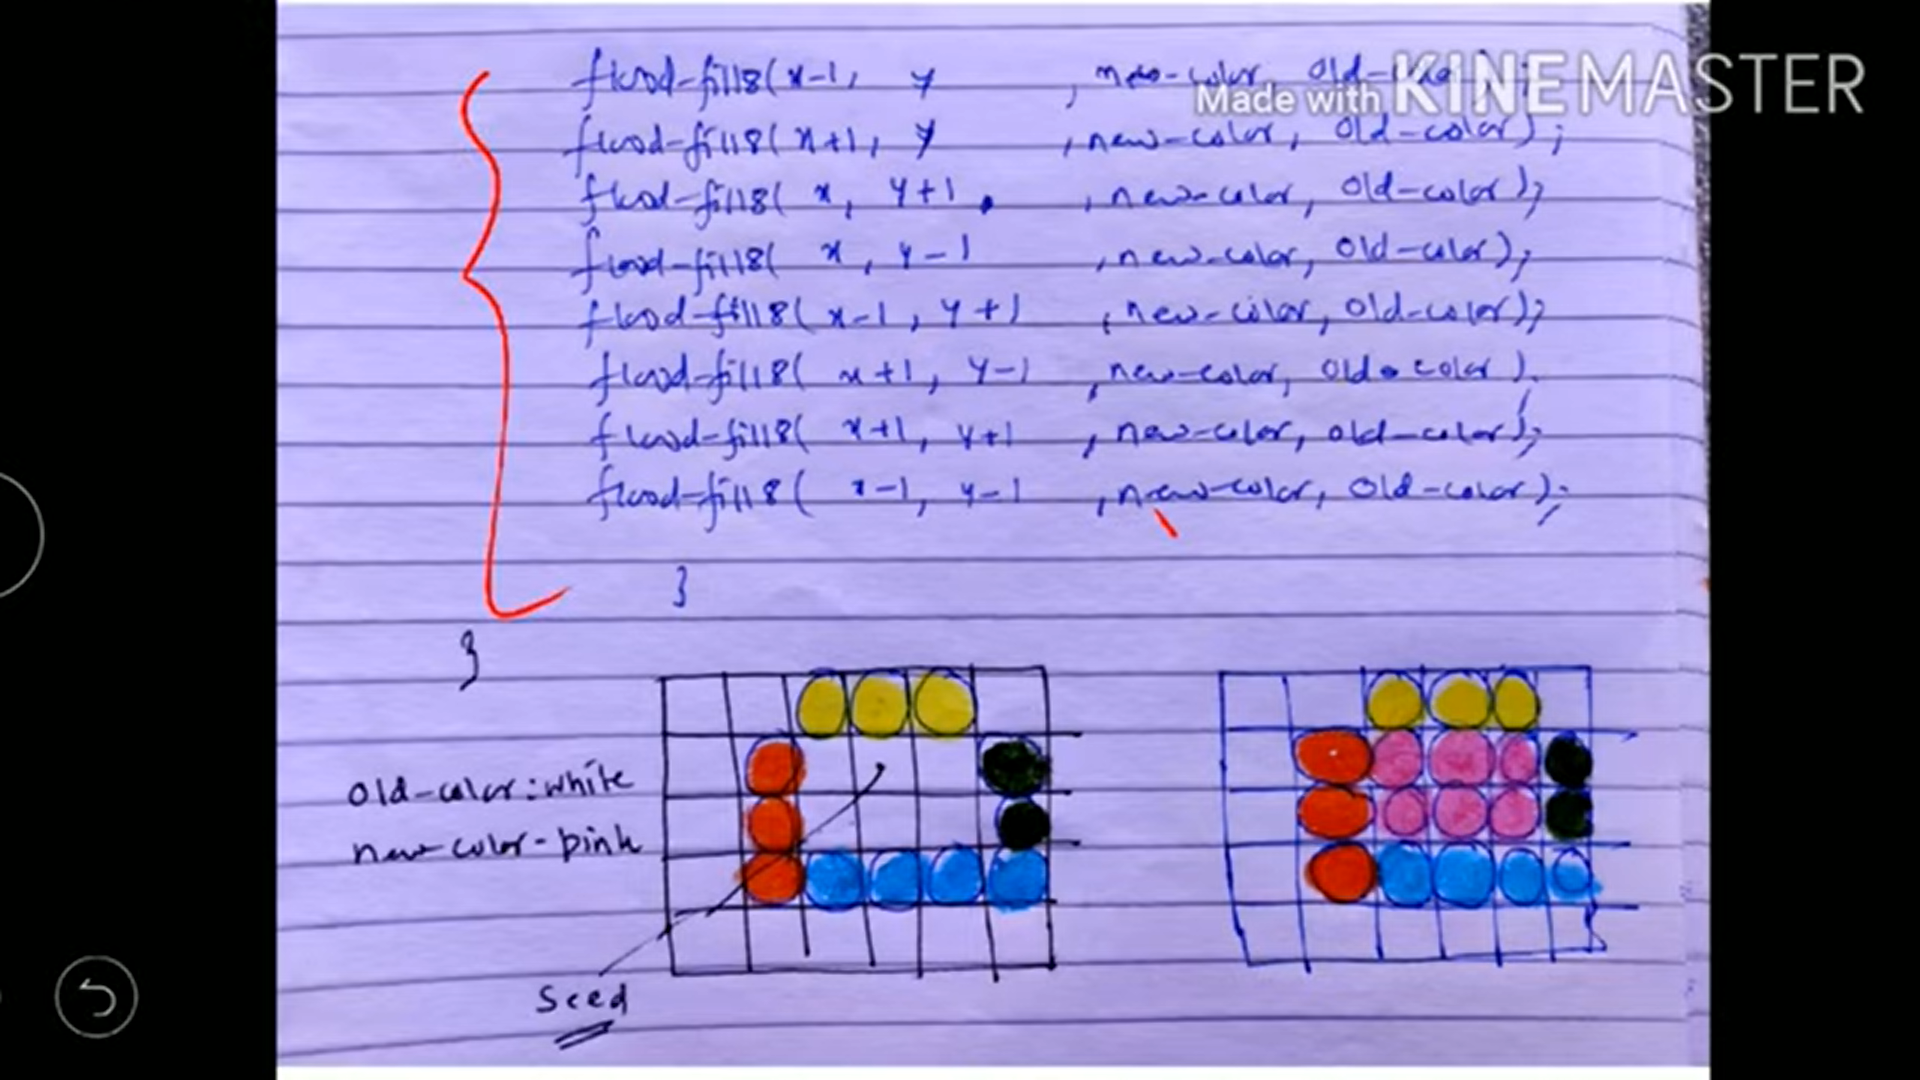 flood-fill8(x-1, y , new-color, old-color);
Made with KINEMASTER
flood-fill8(x+1, y , new-color, old-color);
flood-fill8( x, y+1 , new-color, old-color);
flood-fill8( x, y-1 , new-color, old-color);
flood-fill8( x-1, y+1 , new-color, old-color);
flood-fill8( x+1, y-1 , new-color, old-color);
flood-fill8( x+1, y+1 , new-color, old-color);
flood-fill8( x-1, y-1 , new-color, old-color);
}
}
old-color:white
new-color-pink
Seed